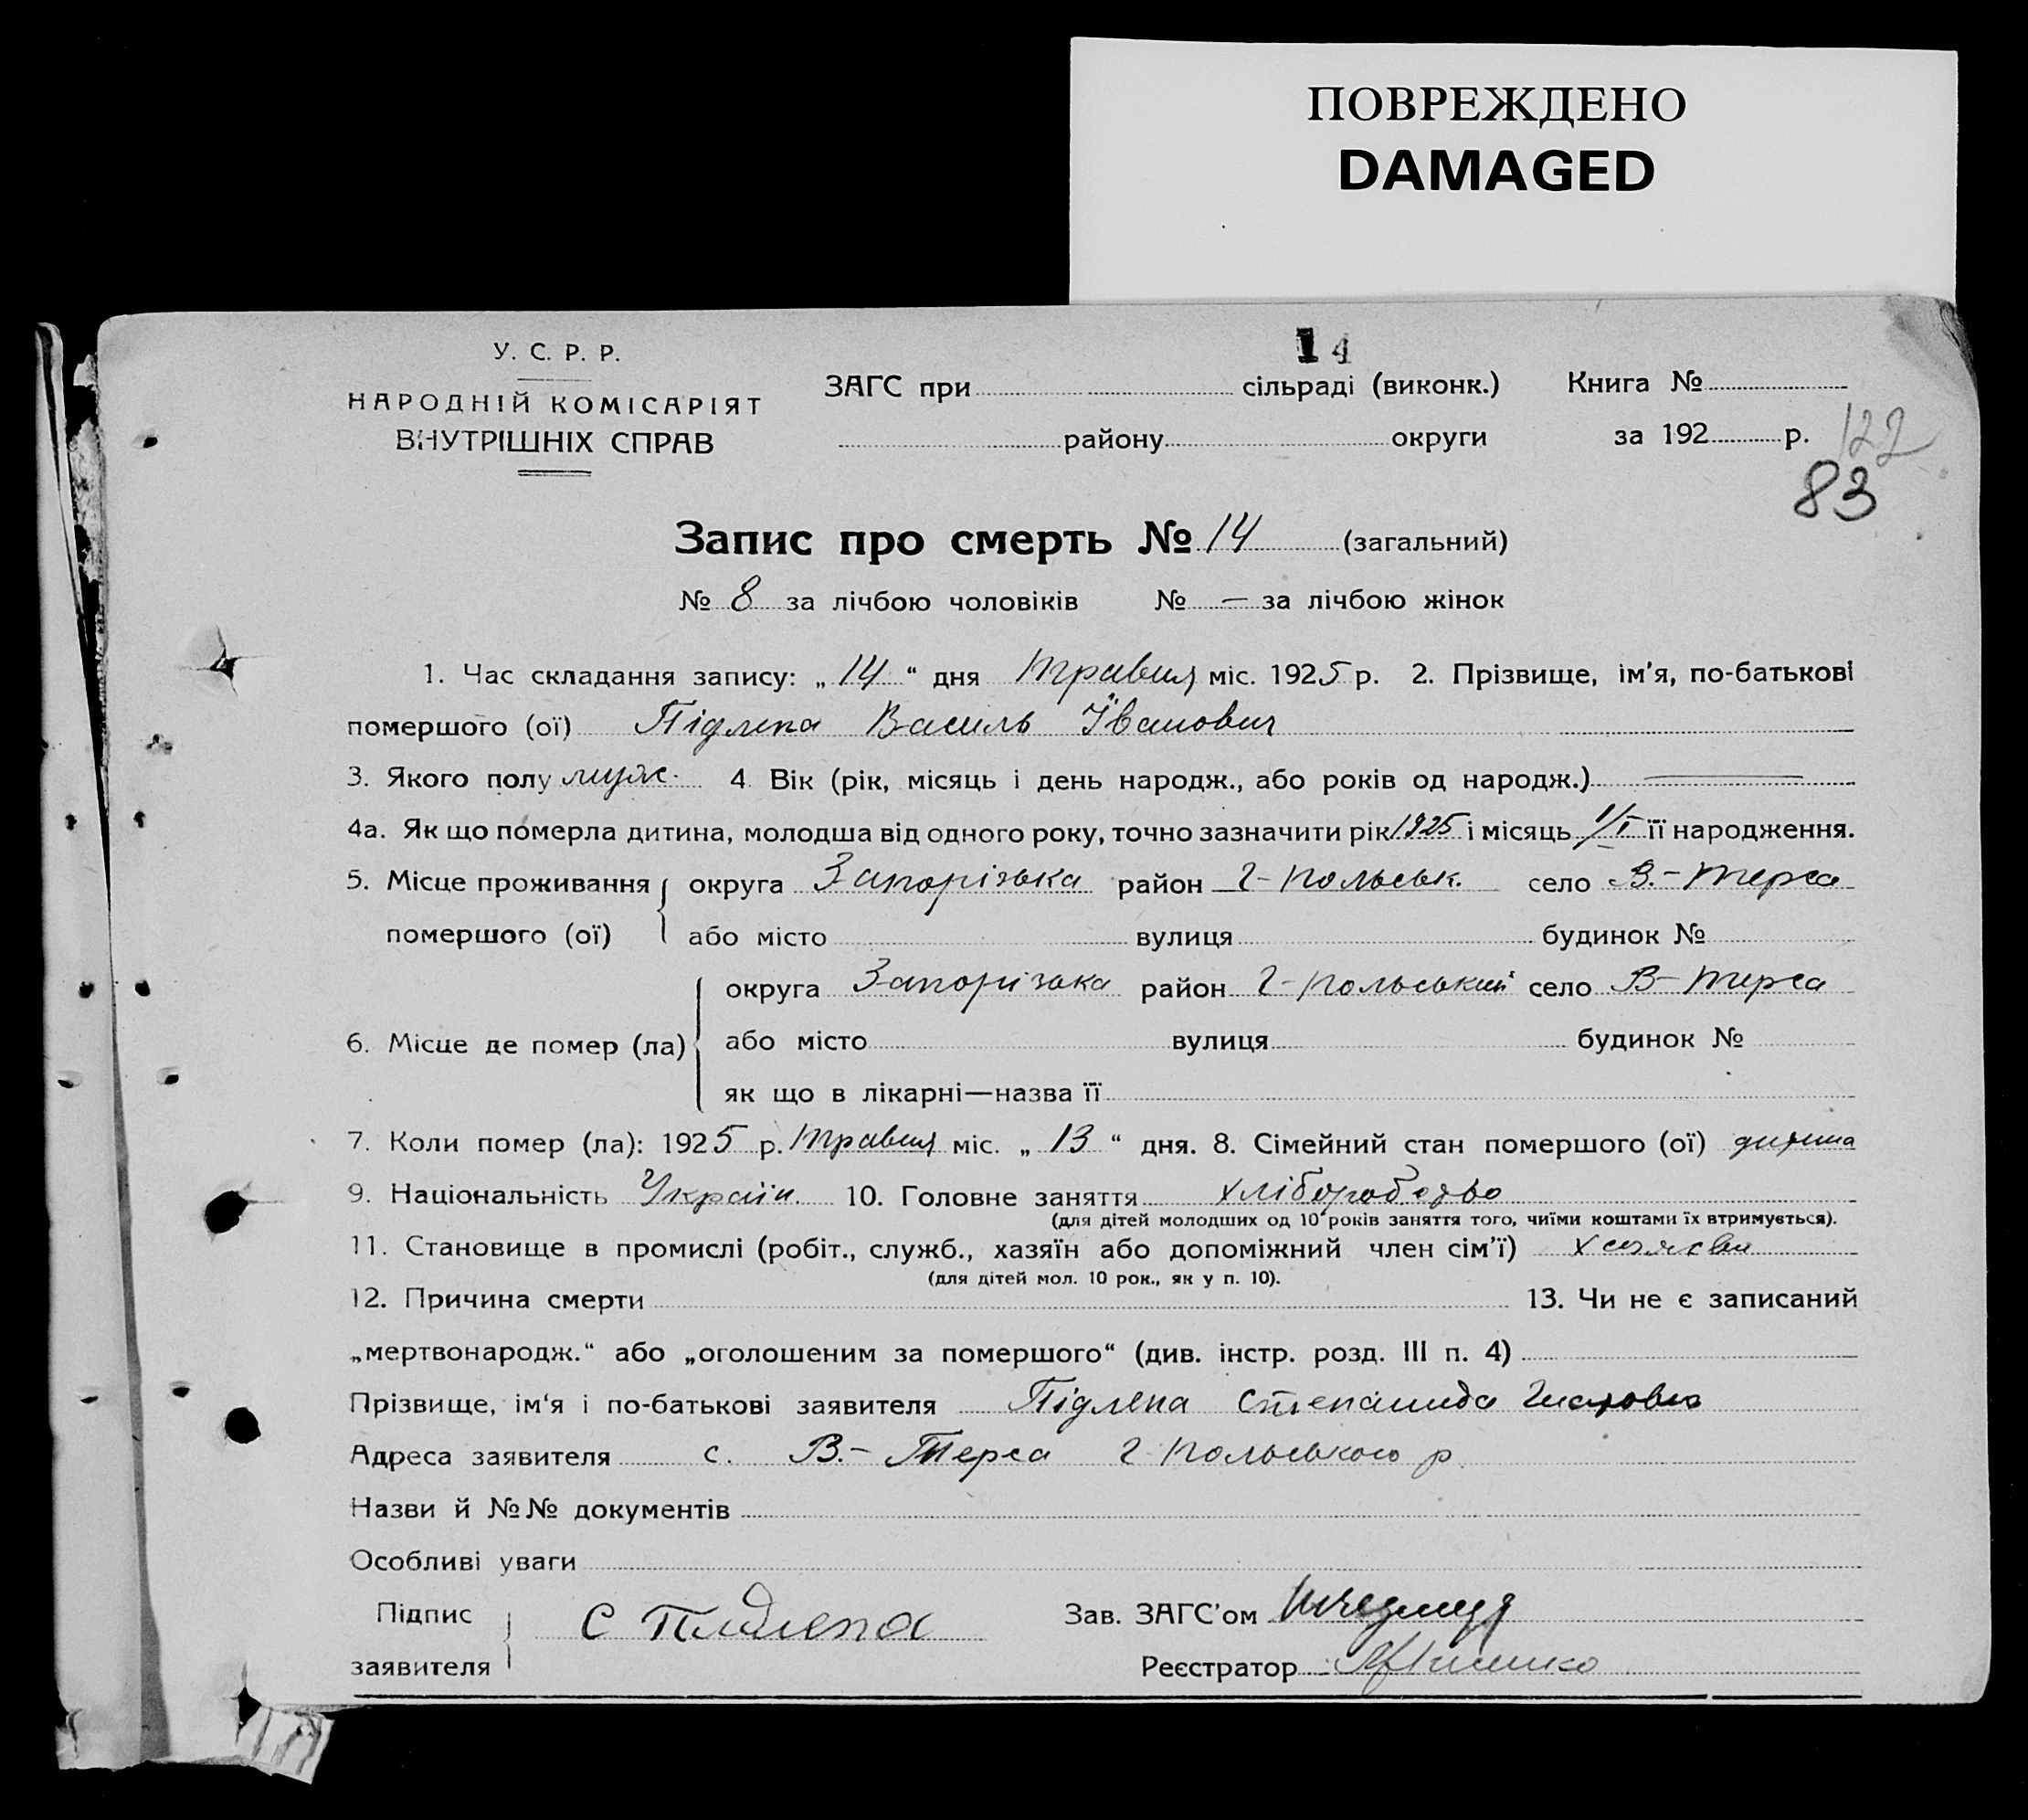 ПОВРЕЖДЕНО
DAMAGED
14
У. С. Р. Р.
НАРОДНІЙ КОМІСАРІЯТ
ВНУТРІШНІХ СПРАВ
ЗАГС при сільраді (виконк.)
району округи
Книга №
за 192 р.
122
83
Запис про смерть № 14 (загальний)
№ 8 за лічбою чоловіків № — за лічбою жінок
1. Час складання запису: „14“ дня Травня міс. 1925 р. 2. Прізвище, ім'я, по-батькові
помершого (ої) Підлепа Василь Іванович
3. Якого полу муж. 4 Вік (рік, місяць і день народж., або років од народж.) —
4а. Як що померла дитина, молодша від одного року, точно зазначити рік 1925 і місяць 1/I її народження.
5. Місце проживання помершого (ої) округа Запорізька район Г-польськ. село В.-Терса
або місто вулиця будинок №
6. Місце де помер (ла) округа Запорізька район Г-польський село В-Терса
або місто вулиця будинок №
як що в лікарні—назва її
7. Коли помер (ла): 1925 р. Травня міс. „13“ дня. 8. Сімейний стан помершого (ої) дитина
9. Національність Україн. 10. Головне заняття хліборобство
(для дітей молодших од 10 років заняття того, чиїми коштами їх втримується).
11. Становище в промислі (робіт., служб., хазяїн або допоміжний член сім'ї)
(для дітей мол. 10 рок., як у п. 10).
12. Причина смерти 13. Чи не є записаний
„мертвонародж.“ або „оголошеним за помершого“ (див. інстр. розд. III п. 4)
Прізвище, ім'я і по-батькові заявителя Підлепа Степанида
Адреса заявителя с. В.-Терса Г-польського р.
Назви й №№ документів
Особливі уваги
Підпис заявителя С Підлепа
Зав. ЗАГС'ом
Реєстратор